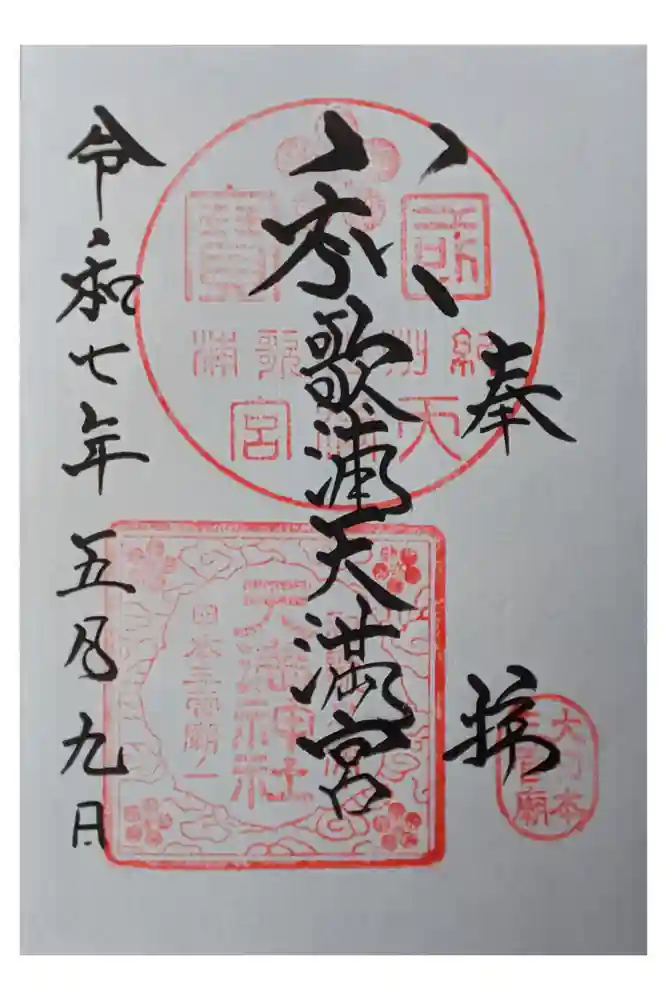 奉拝
和歌浦天満宮
令和七年五月九日
紀州和歌浦
天満宮
天満神社
日本三菅廟ノ一